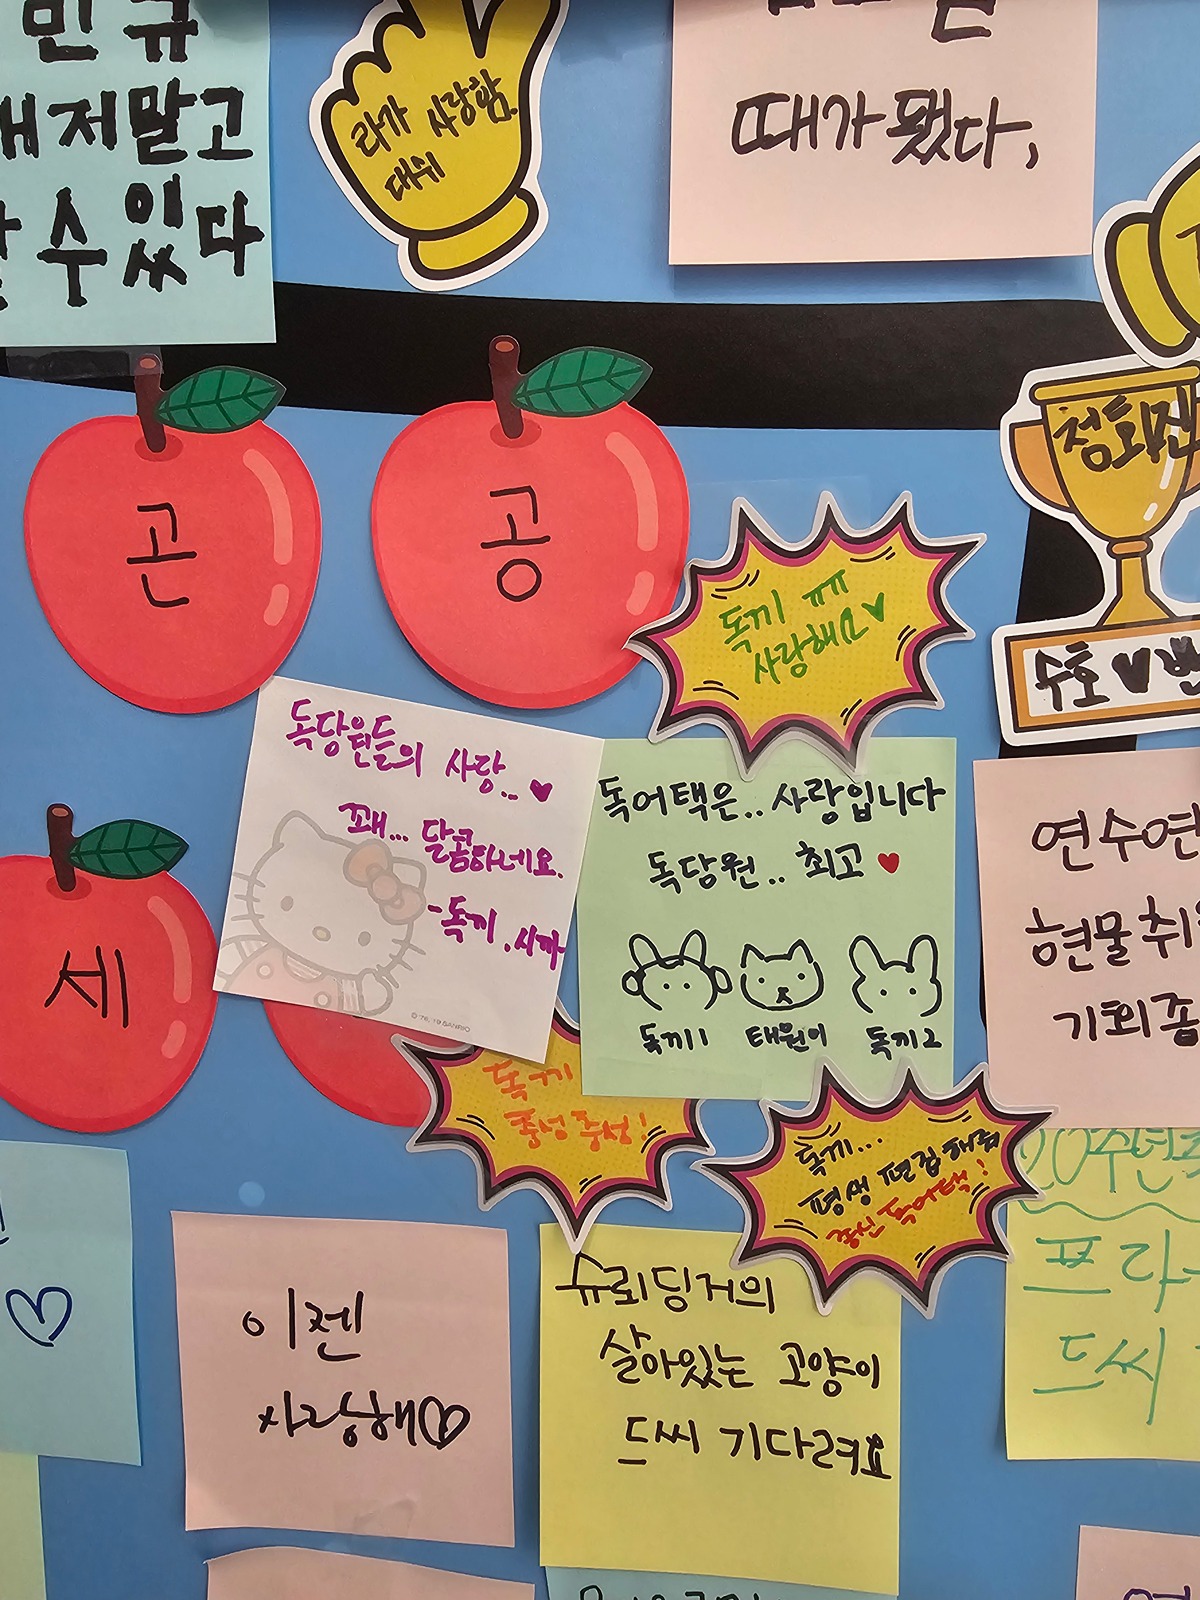 민규
대지말고
수있다
라가 사랑함.
대쉬
때가 됐다,
곤
공
세
정회진
수호♥
독끼 ㅠㅠ
사랑해요♥
독당원들의 사랑..♥
꽤... 달콤하네요.
-독끼.시까
독어택은.. 사랑입니다
독당원.. 최고♥
독끼1 태원이 독끼2
© '76, '19 SANRIO
연수연
현물취
기회좀
독끼
충성충성!
독끼...
평생 편집해줘
종신 독어택!
20주년
프라
드씨
이젠
사랑해♡
슈뢰딩거의
살아있는 고양이
드씨 기다려요